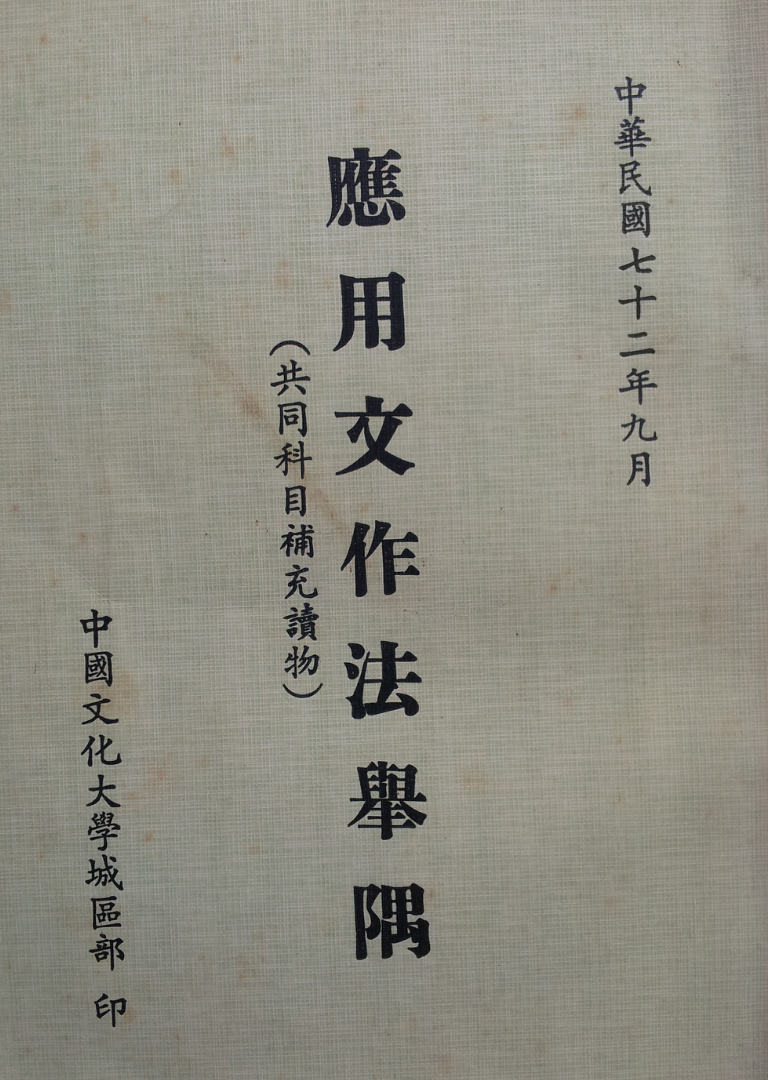 中華民國七十二年九月
應用文作法舉隅
(共同科目補充讀物)
中國文化大學城區部 印